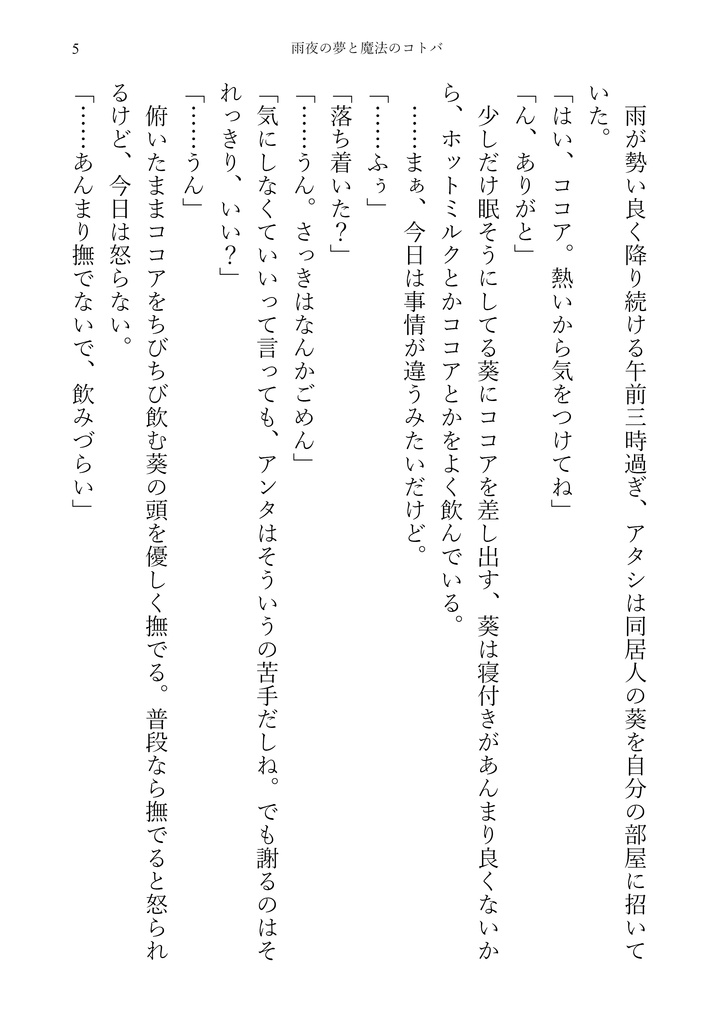 5
雨夜の夢と魔法のコトバ
　雨が勢い良く降り続ける午前三時過ぎ、アタシは同居人の葵を自分の部屋に招いて
いた。
「はい、ココア。熱いから気をつけてね」
「ん、ありがと」
　少しだけ眠そうにしてる葵にココアを差し出す、葵は寝付きがあんまり良くないか
ら、ホットミルクとかココアとかをよく飲んでいる。
　……まぁ、今日は事情が違うみたいだけど。
「……ふぅ」
「落ち着いた？」
「……うん。さっきはなんかごめん」
「気にしなくていいって言っても、アンタはそういうの苦手だしね。でも謝るのはそ
れっきり、いい？」
「……うん」
　俯いたままココアをちびちび飲む葵の頭を優しく撫でる。普段なら撫でると怒られ
るけど、今日は怒らない。
「……あんまり撫でないで、飲みづらい」